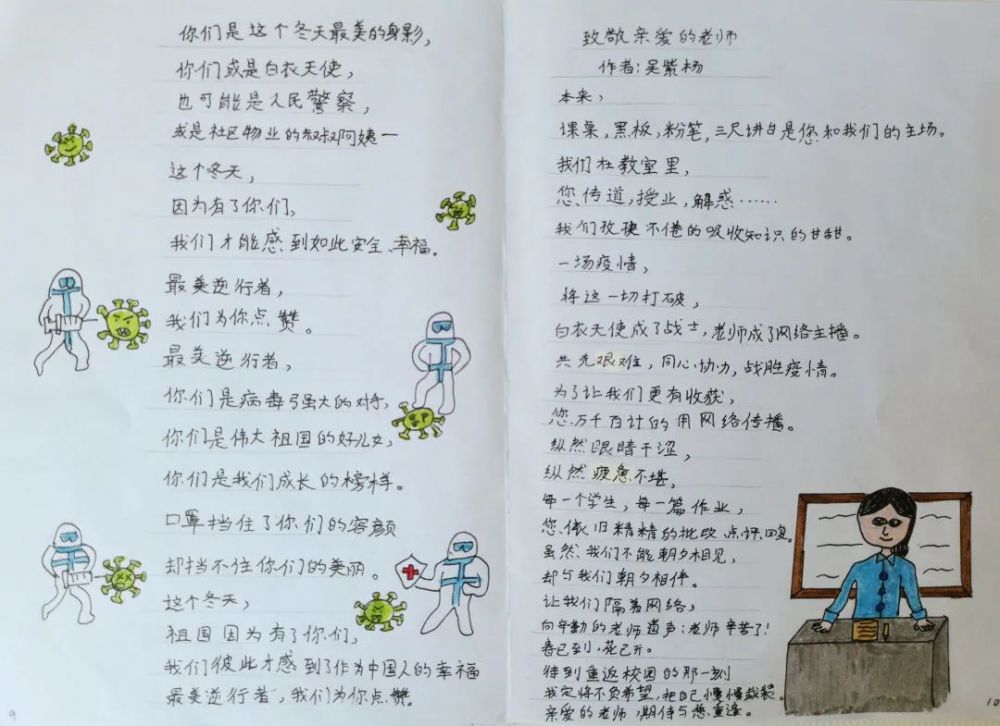 你们是这个冬天最美的身影，
你们或是白衣天使，
也可能是人民警察，
或是社区物业的叔叔阿姨一
这个冬天，
因为有了你们，
我们才能感到如此安全、幸福。
最美逆行者，
我们为你点赞。
最美逆行者，
你们是病毒强大的对手，
你们是伟大祖国的好儿女，
你们是我们成长的榜样。
口罩挡住了你们的容颜
却挡不住你们的美丽。
这个冬天，
祖国因为有了你们，
我们彼此才感到了作为中国人的幸福
最美逆行者，我们为你点赞
9
致敬亲爱的老师
作者：吴紫杨
本来，
课桌，黑板，粉笔，三尺讲台是您和我们的主场。
我们在教室里，
您传道，授业，解惑……
我们孜孜不倦的吸收知识的甘甜。
一场疫情，
将这一切打破，
白衣天使成了战士，老师成了网络主播。
共克艰难，同心协力，战胜疫情。
为了让我们更有收获，
您万千百计的用网络传播。
纵然眼睛干涩，
纵然疲惫不堪，
每一个学生，每一篇作业，
您依旧精精的批改点评回复。
虽然我们不能朝夕相见，
却与我们朝夕相伴。
让我们隔着网络，
向辛勤的老师道声：老师辛苦了！
春已到，花已开。
待到重返校园的那一刻
我定将不负希望，把自己慢慢
亲爱的老师，期待与您重逢。